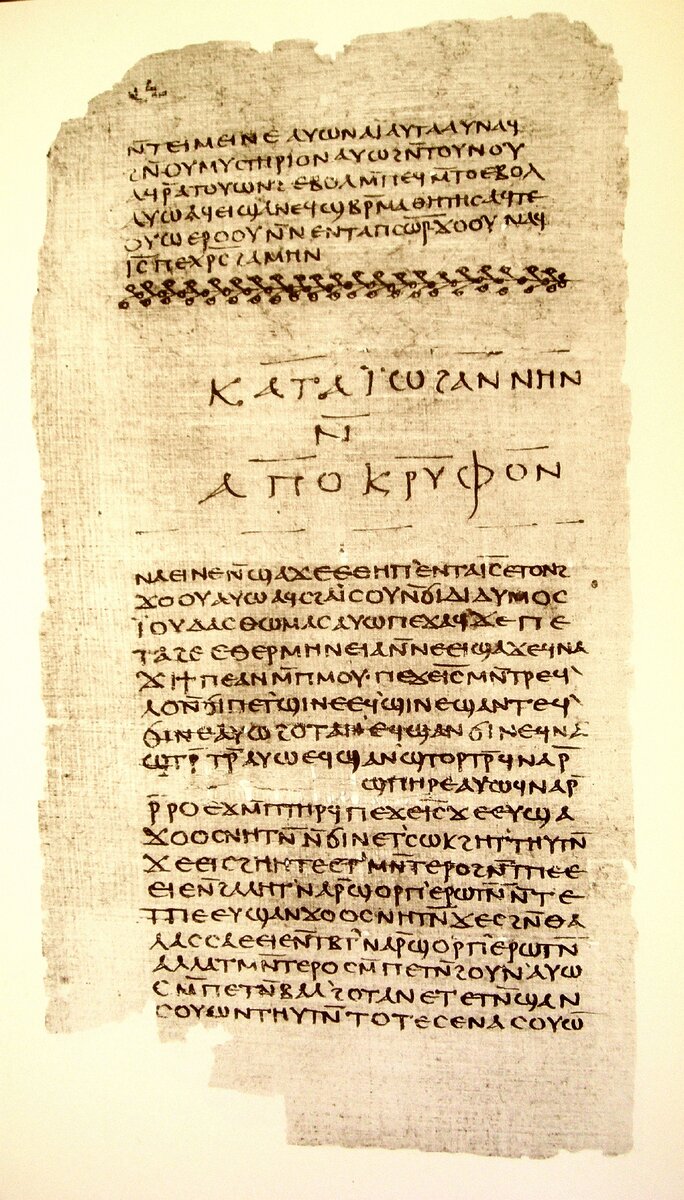 ⲗⲃ
ⲛ̄ⲧⲉⲓⲙⲉⲓⲛⲉ ⲁⲩⲱ ⲛⲁⲓ̈ ⲁⲩⲧⲁⲁⲩ ⲛⲁϥ
ϩⲛ̄ ⲟⲩⲙⲩⲥⲧⲏⲣⲓⲟⲛ ⲁⲩⲱ ϩⲛ̄ ⲧⲟⲩⲛⲟⲩ
ⲁϥⲣ̄ⲁⲧⲟⲩⲱⲛϩ ⲉⲃⲟⲗ ⲙ̄ⲡⲉϥⲙ̄ⲧⲟ ⲉⲃⲟⲗ
ⲁⲩⲱ ⲁϥⲉⲓ ϣⲁ ⲛⲉϥϣⲃⲣ̄ⲙⲁⲑⲏⲧⲏⲥ ⲁϥⲧⲉ
ⲟⲩⲱ ⲉⲣⲟⲟⲩ ⲛ̄ⲛⲉⲛⲧⲁ ⲡⲥⲱ̄ⲣ̄ ϫⲟⲟⲩ ⲛⲁϥ
ⲓ̄ⲥ̄ ⲡⲉⲭ̄ⲣ̄ⲥ̄ ϩⲁⲙⲏⲛ
ⲕⲁⲧⲁ ⲓ̈ⲱϩⲁⲛⲛⲏⲛ
ⲛ̄
ⲁⲡⲟⲕⲣⲩⲫⲟⲛ
ⲛⲁⲉⲓ ⲛⲉ ⲛ̄ϣⲁϫⲉ ⲉⲑⲏⲡ` ⲉⲛⲧⲁ ⲓ̄ⲥ̄ ⲉⲧⲟⲛϩ
ϫⲟⲟⲩ ⲁⲩⲱ ⲁϥⲥϩⲁⲓ̈ⲥⲟⲩ ⲛ̄ϭⲓ ⲇⲓⲇⲩⲙⲟⲥ
ⲓ̈ⲟⲩⲇⲁⲥ ⲑⲱⲙⲁⲥ ⲁⲩⲱ ⲡⲉϫⲁϥ ϫⲉ ⲡⲉ
ⲧⲁϩⲉ ⲉⲑⲉⲣⲙⲏⲛⲉⲓⲁ ⲛ̄ⲛⲉⲉⲓϣⲁϫⲉ ϥⲛⲁ
ϫⲓ ϯⲡⲉ ⲁⲛ ⲙ̄ⲡⲙⲟⲩ· ⲡⲉϫⲉ ⲓ̄ⲥ̄ ⲙⲛ̄ⲧⲣⲉϥ`
ⲗⲟ ⲛ̄ϭⲓ ⲡⲉⲧ`ϣⲓⲛⲉ ⲉϥϣⲓⲛⲉ ϣⲁⲛⲧⲉϥ`
ϭⲓⲛⲉ ⲁⲩⲱ ϩⲟⲧⲁⲛ` ⲉϥϣⲁⲛϭⲓⲛⲉ ϥⲛⲁ
ϣⲧⲣ̄ⲧⲣ̄ ⲁⲩⲱ ⲉϥϣⲁⲛϣⲧⲟⲣⲧⲣ̄ ϥⲛⲁⲣ̄
ϣⲡⲏⲣⲉ ⲁⲩⲱ ϥⲛⲁⲣ̄
ⲣ̄ⲣⲟ ⲉϫⲙ̄ ⲡⲧⲏⲣϥ ⲡⲉϫⲉ ⲓ̄ⲥ̄ ϫⲉ ⲉⲩϣⲁ
ϫⲟⲟⲥ ⲛⲏⲧⲛ̄ ⲛ̄ϭⲓ ⲛⲉⲧ`ⲥⲱⲕ ϩⲏⲧ` ⲧⲏⲩⲧⲛ̄
ϫⲉ ⲉⲓⲥϩⲏⲏⲧⲉ ⲉⲧ`ⲙⲛ̄ⲧⲉⲣⲟ ϩⲛ̄ ⲧⲡⲉ ⲉ
ⲉⲓⲉ ⲛ̄ϩⲁⲗⲏⲧ` ⲛⲁⲣ̄ϣⲟⲣⲡ` ⲉⲣⲱⲧⲛ̄ ⲛ̄ⲧⲉ
ⲧⲡⲉ ⲉⲩϣⲁⲛϫⲟⲟⲥ ⲛⲏⲧⲛ̄ ϫⲉ ⲥϩⲛ̄ ⲑⲁ
ⲗⲁⲥⲥⲁ ⲉⲉⲓⲉ ⲛ̄ⲧⲃⲧ` ⲛⲁⲣ̄ϣⲟⲣⲡ` ⲉⲣⲱⲧⲛ̄
ⲁⲗⲗⲁ ⲧⲙⲛ̄ⲧⲉⲣⲟ ⲥⲙ̄ⲡⲉⲧⲛ̄ϩⲟⲩⲛ` ⲁⲩⲱ
ⲥⲙ̄ⲡⲉⲧⲛ̄ⲃⲁⲗ` ϩⲟⲧⲁⲛ ⲉⲧⲉⲧⲛ̄ϣⲁⲛ
ⲥⲟⲩⲱⲛ ⲧⲏⲩⲧⲛ̄ ⲧⲟⲧⲉ ⲥⲉⲛⲁⲥⲟⲩⲱ